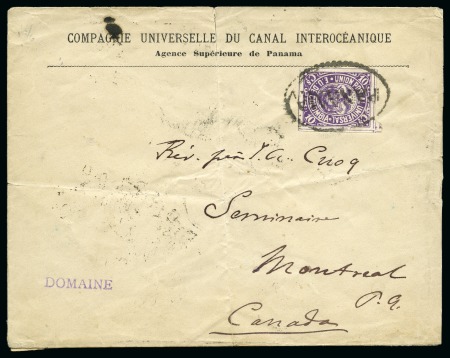 COMPAGNIE UNIVERSELLE DU CANAL INTEROCÉANIQUE
Agence Supérieure de Panama
UNION UNIVERSAL
Rév. père J. A. Cuoq
Seminaire
Montreal
P. Q.
DOMAINE
Canada